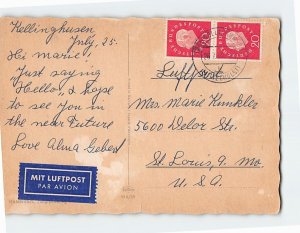 Kellinghusen
July, 25.
Hi Marie!
Just saying
Hello, & hope
to see you in
the near Future
Love Alma Geber
MIT LUFTPOST
PAR AVION
DEUTSCHE BUNDESPOST
20
DEUTSCHE BUNDESPOST
20
Luftpost
Mrs. Marie Kunkler
5600 Delor Str.
St. Louis, 9. Mo.
U.S.A.